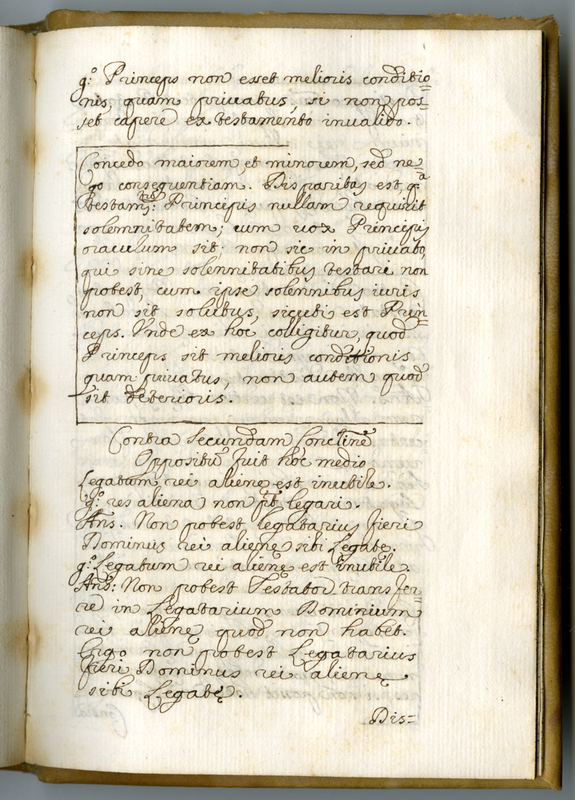 g.° Princeps non esset melioris conditio=
nis, quam privatus, si non pos=
set capere ex testamento invalido.
Concedo maiorem, et minorem, sed ne
go consequentiam. Disparitas est, q.a
Testam.tus: Principis nullam requirit
solemnitatem; cum vox Principis
oraculum sit; non sic in privato,
qui sine solennitatibus testare non
potest, cum ipse solennibus iuris
non sit solutus, sicuti est Prin=
ceps. Unde ex hoc colligitur, quod
Princeps sit melioris conditionis
quam privatus, non autem quod
sit deterioris.
Contra Secundam Conc.tine
Oppositu fuit hoc medio
Legatum rei alienę est inutile.
g.° res aliena non pt legari.
Ans. Non potest legatarius fieri
Dominus rei alienę sibi Legatę.
g.° Legatum rei alienę est inutile.
Ans: Non potest Testator transfer=
re in Legatarium Dominium
rei alienę quod non habet.
Ergo non potest Legatarius
fieri Dominus rei alienę
sibi Legatę.
Dis=